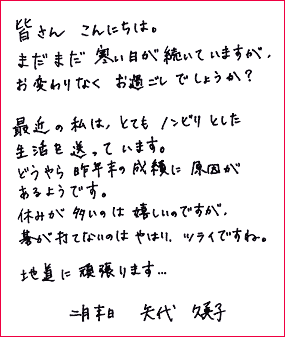 皆さん こんにちは。
まだまだ 寒い日が続いていますが、
お変わりなく お過ごしでしょうか?
最近の私は、とても ノンビリとした
生活を送っています。
どうやら 昨年末の成績に 原因が
あるようです。
休みが 多いのは 嬉しいのですが、
碁が打てないのは やはり、ツライですね。
地道に 頑張ります…
二月末日 矢代 久美子